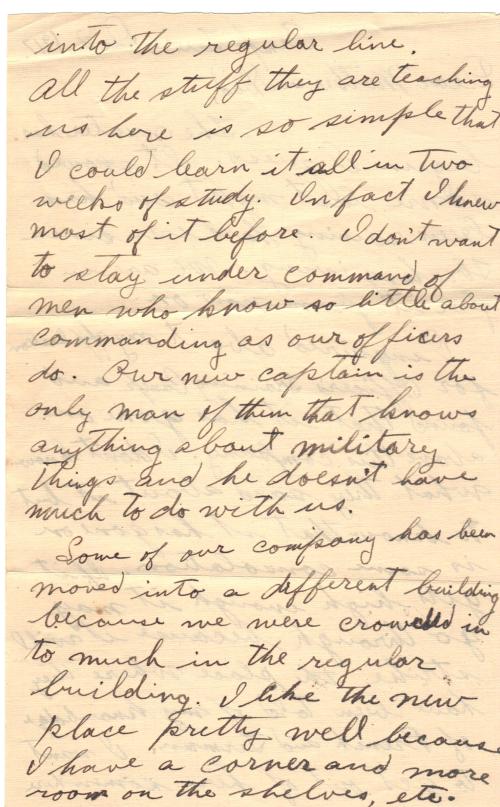 into the regular line.
All the stuff they are teaching
us here is so simple that
I could learn it all in two
weeks of study. In fact I knew
most of it before. I don't want
to stay under command of
men who know so little about
commanding as our officers
do. Our new captain is the
only man of them that knows
anything about military
things and he doesn't have
much to do with us.
Some of our company has been
moved into a different building
because we were crowded in
to much in the regular
building. I like the new
place pretty well because
I have a corner and more
room on the shelves, etc.